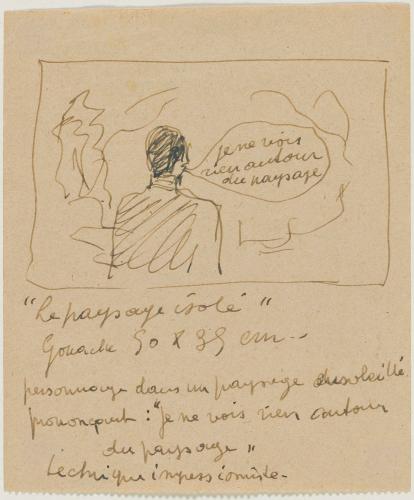 je ne vois
rien autour
du paysage
"Le paysage isolé"
Gouache 50 X 35 cm -
personnage dans un paysage ensoleillé
prononçant : "Je ne vois rien autour
du paysage"
technique impressionniste -